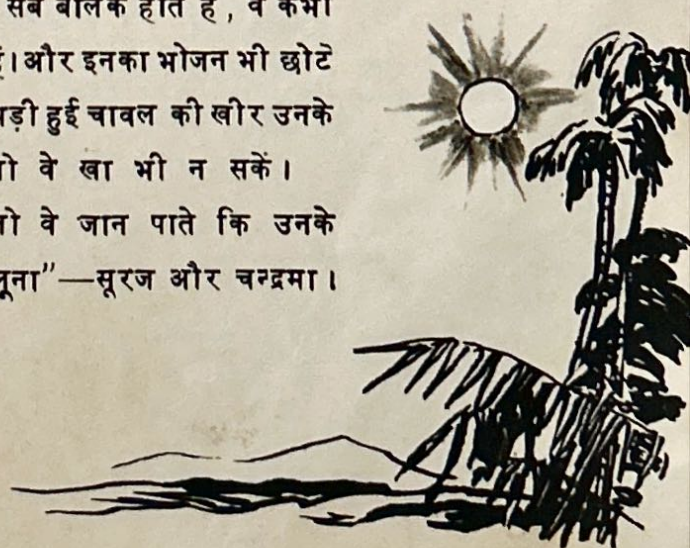 सब बालक होते हैं, वे कभी
हैं। और इनका भोजन भी छोटे
पड़ी हुई चावल की खीर उनके
वे खा भी न सकें।
वे जान पाते कि उनके
लूना”—सूरज और चन्द्रमा।